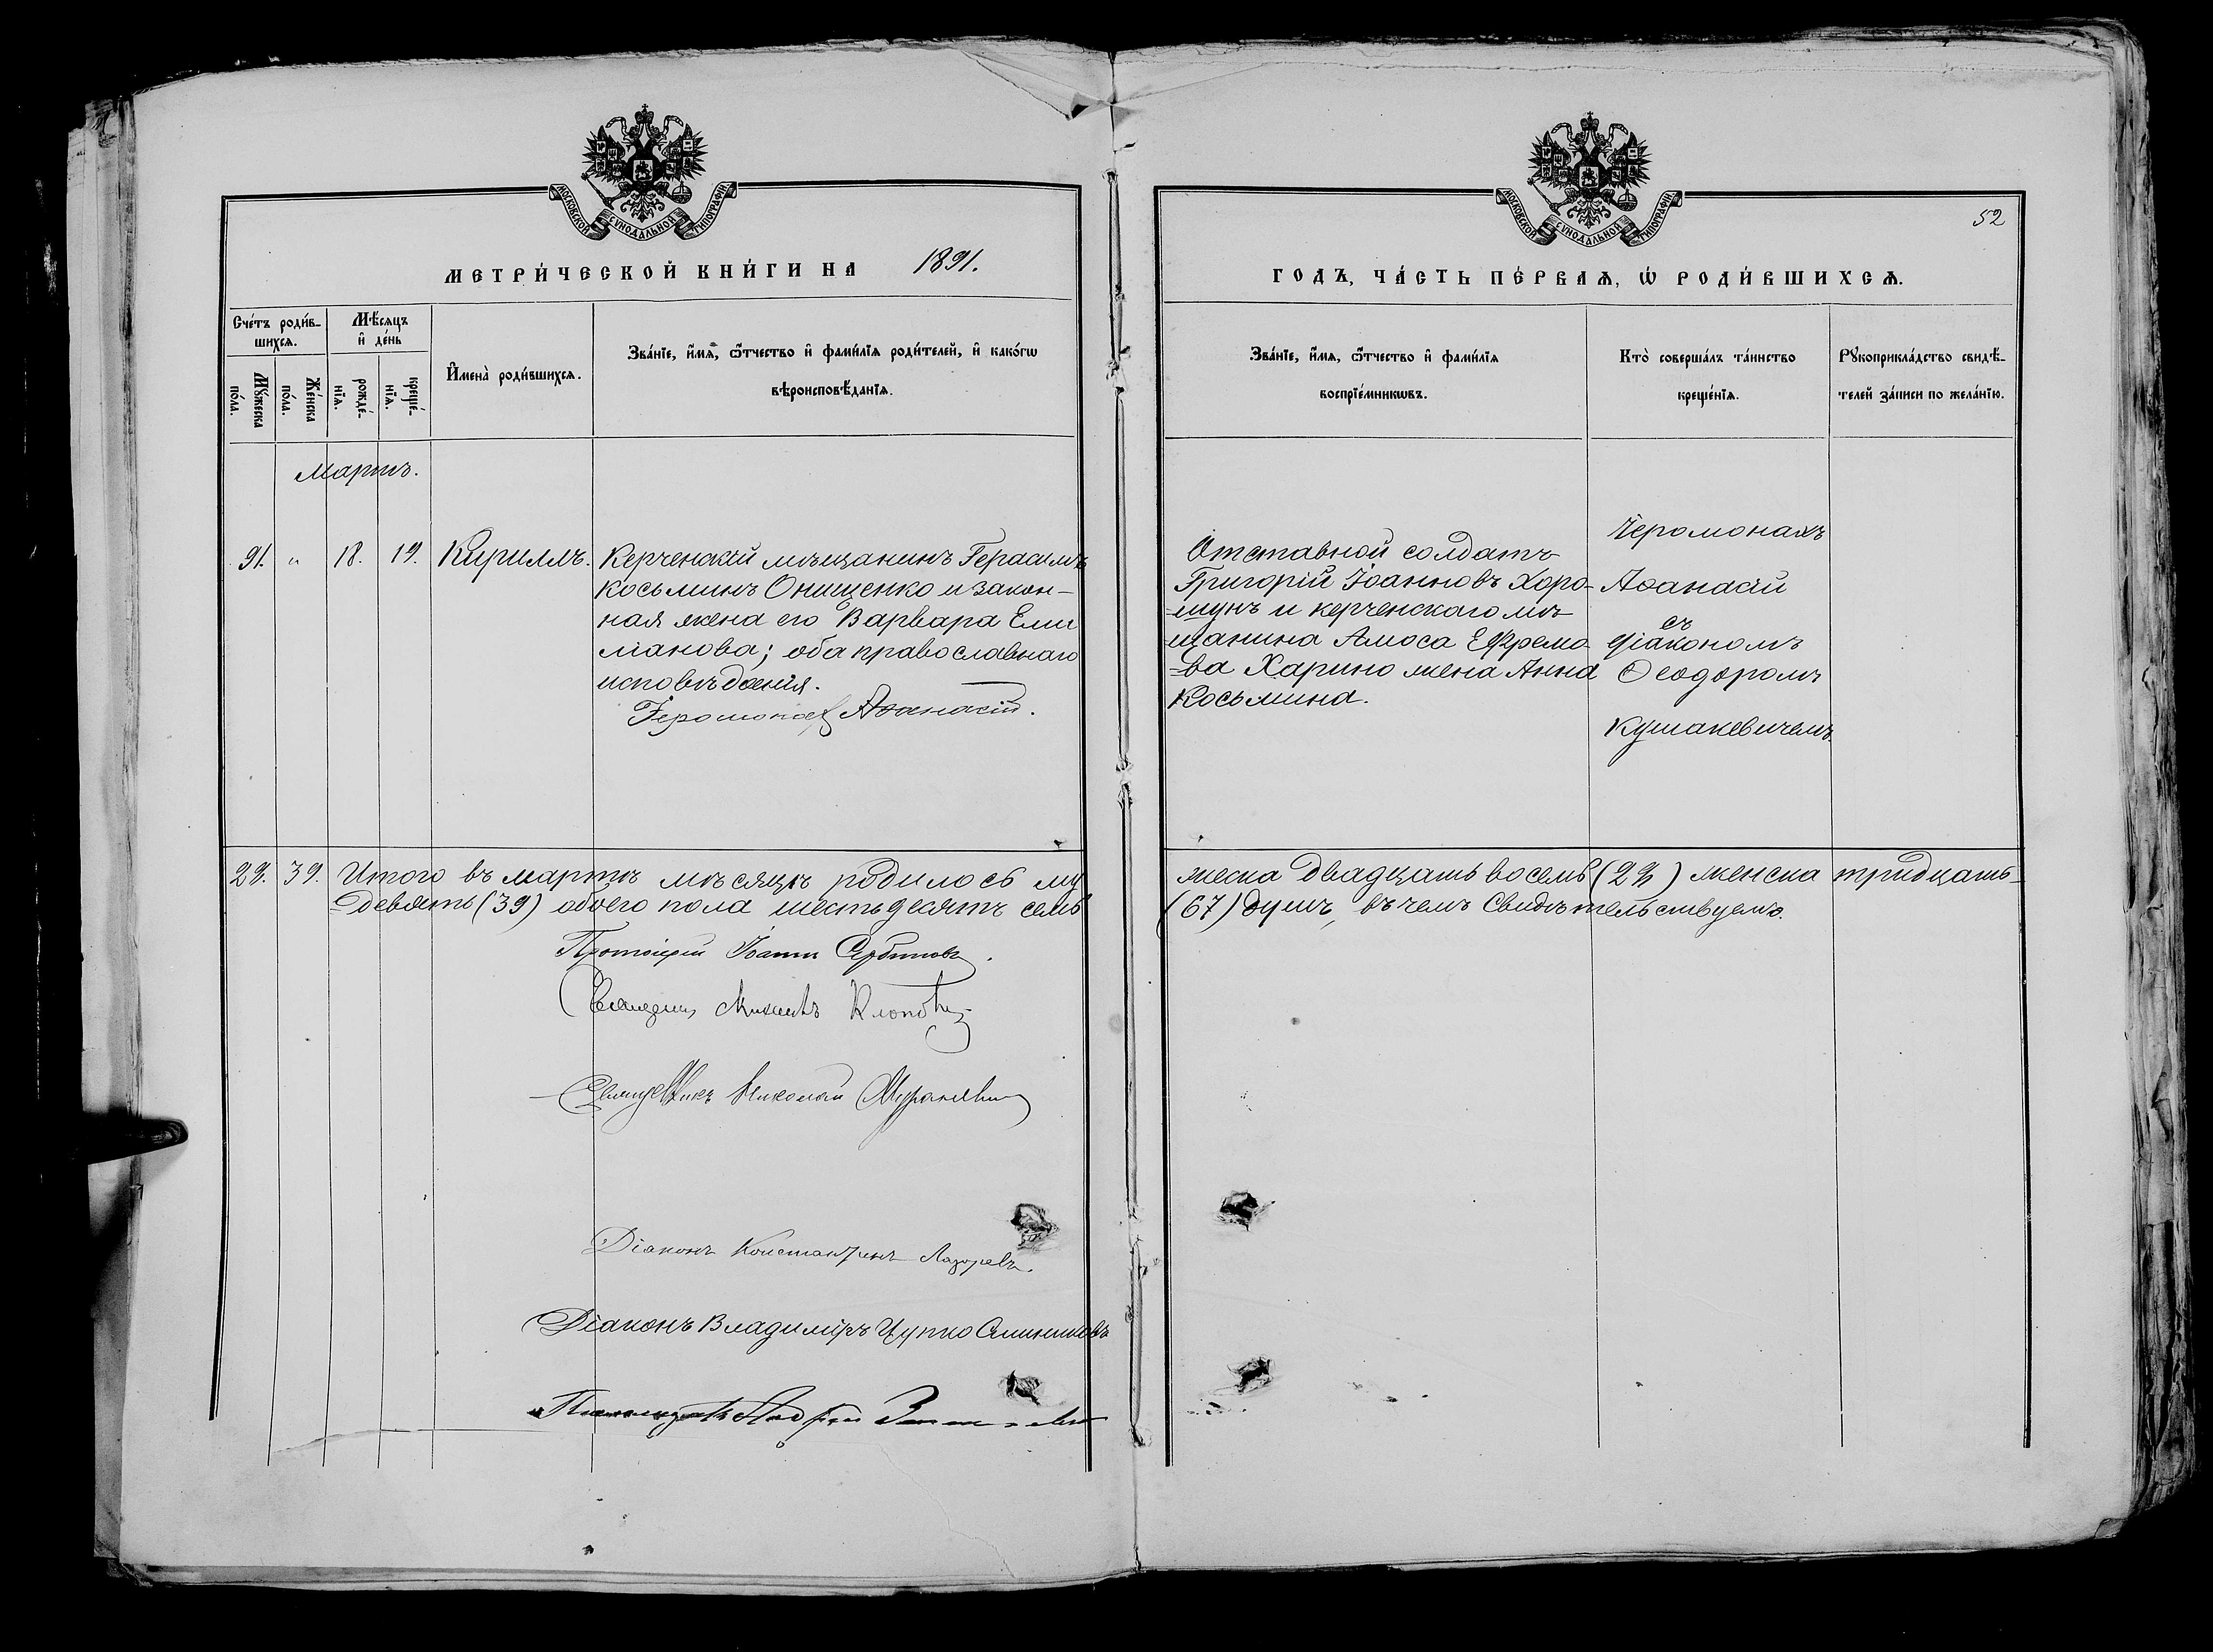 МОСКОВСКОЙ СѴНОДАЛЬНОЙ ТИПОГРАФІИ
МЕТРИ́ЧЕСКОЙ КНИ́ГИ НА 1891.
Сче́тъ роди́в-
шихсѧ.
Мѣ́сѧцъ
и҆ де́нь
Мꙋ́жеска
по́ла.
Же́нска
по́ла.
рожде́-
нїѧ.
креще́-
нїѧ.
И҆мена̀ роди́вшихсѧ.
Зва́нїе, и҆́мѧ, ѻ҆́тчество и҆ фами́лїѧ роди́телей, и҆ како́гѡ
вѣроисповѣ́данїѧ.
Мартъ.
91. " 18. 19. Кириллъ.
Керченскій мѣщанинъ Герасимъ
Косьминъ Онищенко и закон-
ная жена его Варвара Еми
ліанова; оба православнаго
исповѣданія.
Іеромонах Аѳанасій.
28. 39. Итого въ мартѣ мѣсяцѣ родилось му
=девять (39) обоего пола шестьдесятъ семь
Протоіерей Іоаннъ Сербиновъ.
Священникъ Михаилъ
Священникъ Николай
Діаконъ Константинъ Лазоревъ.
Діаконъ Владиміръ Цупко
МОСКОВСКОЙ СѴНОДАЛЬНОЙ ТИПОГРАФІИ
52
ГОДЪ, ЧА́СТЬ ПЕ́РВАѦ, Ѡ҆ РОДИ́ВШИХСѦ.
Зва́нїе, и҆́мѧ, ѻ҆́тчество и҆ фами́лїѧ
воспрїе́мникѡвъ.
Кто̀ соверша́лъ та́инство
креще́нїѧ.
Рꙋкоприкла́дство свидѣ́-
телей за́писи по жела́нїю.
Отставной солдатъ
Григорій Іоанновъ Хоро-
-шунъ и керченскаго мѣ
щанина Амоса Ефремо
-ва Харино жена Анна
Косьмина.
Іеромонахъ
Аѳанасій
съ
діакономъ
Ѳеодоромъ
Кушакевичемъ.
жеска двадцать восемь (28) женска тридцать=
(67) душъ, въ чемъ свидѣтельствуемъ.